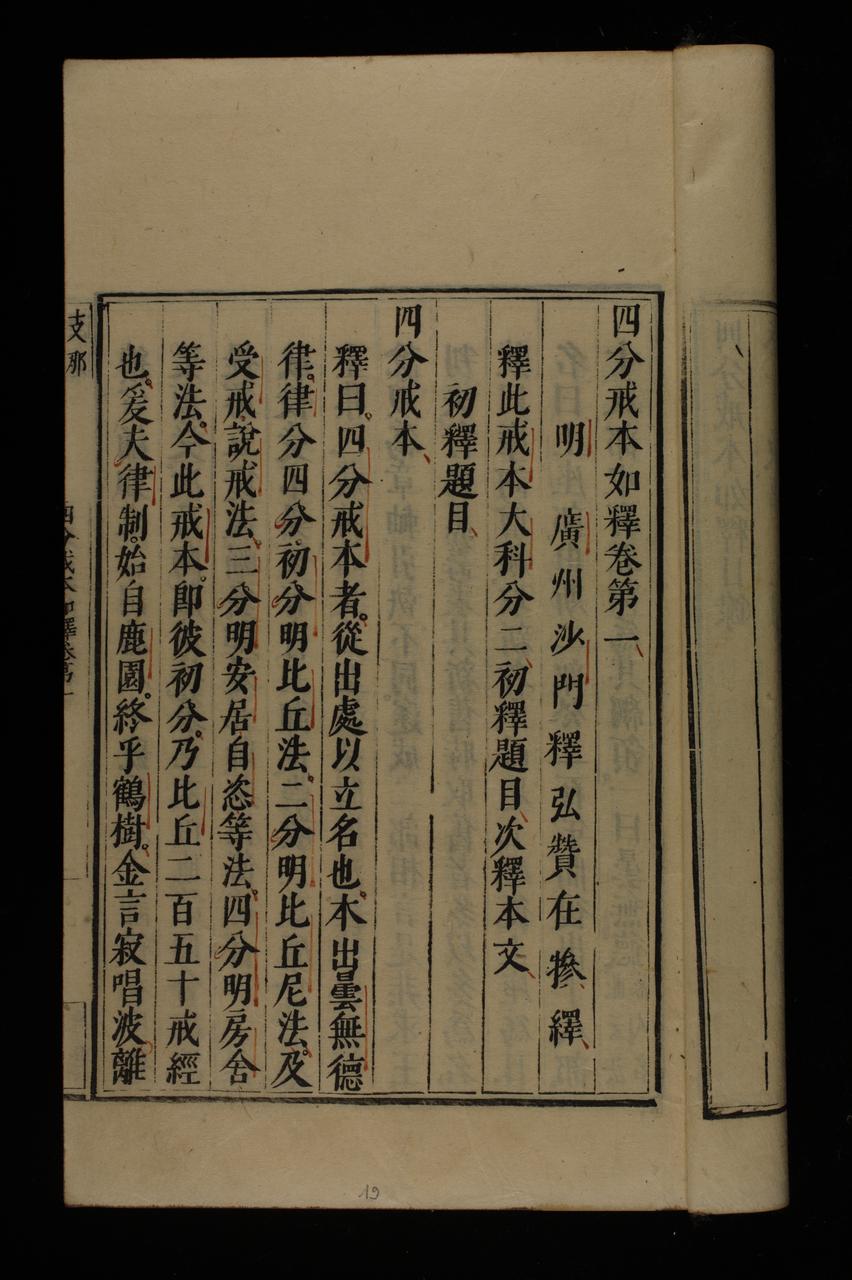 四分戒本如釋卷第一
明 廣州沙門釋弘贊在犙繹
釋此戒本大科分二初釋題目次釋本文
初釋題目
四分戒本
釋曰。四分戒本者。從出處以立名也。本出曇無德
律。律分四分。初分明比丘法。二分明比丘尼法。及
受戒說戒法。三分明安居自恣等法。四分明房舍
等法。今此戒本。即彼初分。乃比丘二百五十戒經
也。爰夫律制。始自鹿園。終乎鶴樹。金言寂唱。波離
支那
四分戒本如釋卷第一
19